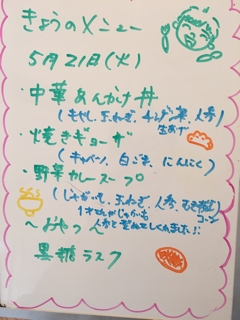 きょうのメニュー
5月21日(火)
・中華あんかけ丼
(もやし、玉ねぎ、チンゲン菜、人参)
生あげ
・焼きギョーザ
(キャベツ、白ごま、にんにく)
・野菜カレースープ
(じゃがいも、玉ねぎ、人参、
コーン
1才さんがじゃがいも
人参と
くれました!!
〜おやつ〜
黒糖ラスク